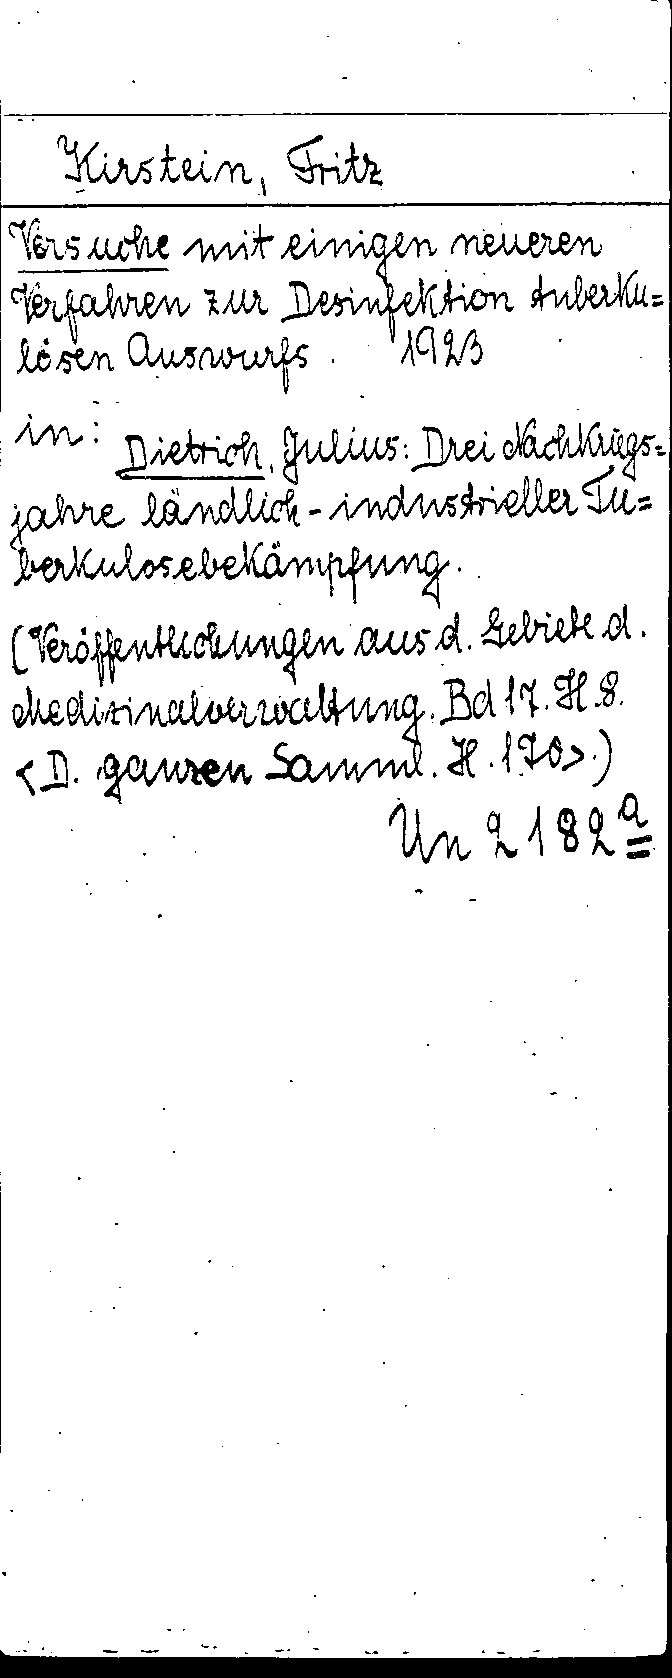 Kirstein, Fritz
Versuche mit einigen neueren
Verfahren zur Desinfektion tuberku=
lösen Auswurfs. 1923
in: Dietrich, Julius: Drei Nachkriegs=
jahre ländlich-industrieller Tu=
berkulosebekämpfung.
(Veröffentlichungen aus d. Gebiete d.
Medizinalverwaltung. Bd 17. H. 8.
<D. ganzen Samml. H. 170>.)
Un 2182 a